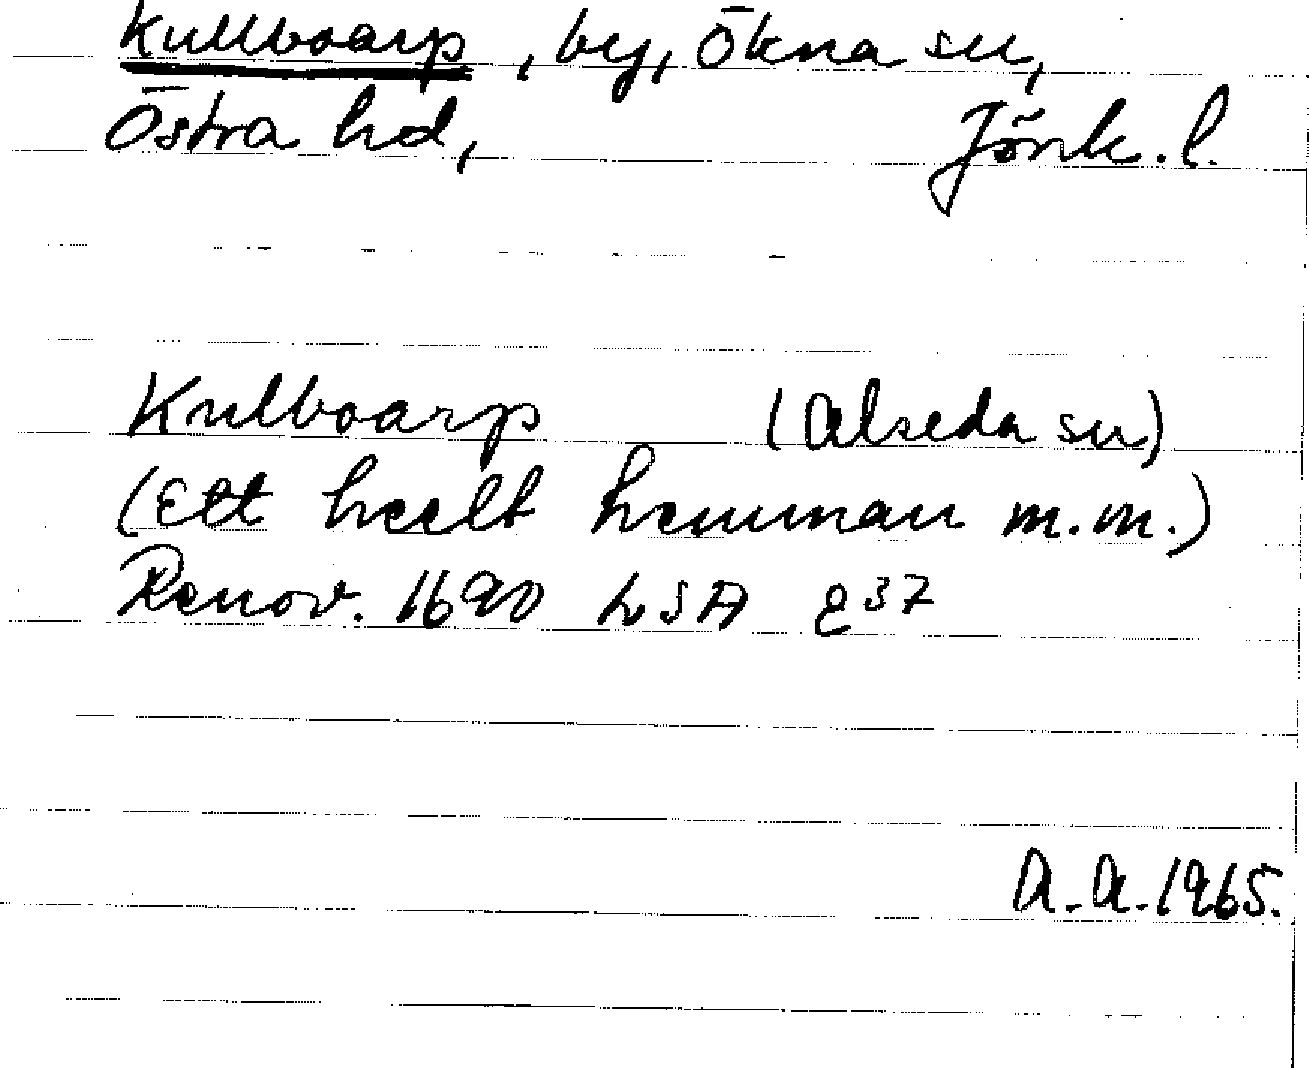 Kullboarp, by, Ökna sn,
Östra hd, Jönk. l.
Kulboarp (Alseda sn)
(Ett heelt hemman m.m.)
Renov. 1690 LSA E37
A.A. 1965.